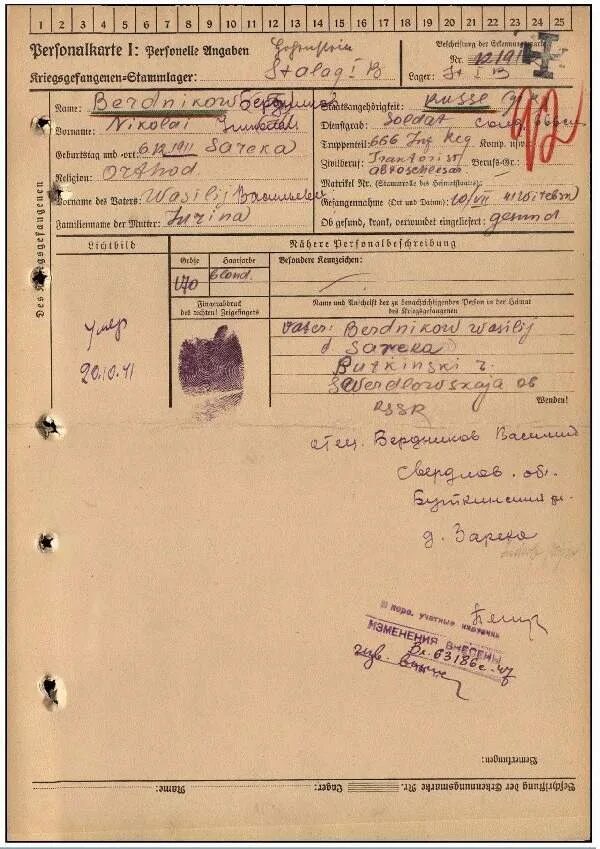 1 2 3 4 5 6 7 8 9 10 11 12 13 14 15 16 17 18 19 20 21 22 23 24 25
Personalkarte I: Personelle Angaben
Kriegsgefangenen-Stammlager: Stalag I B
Beschriftung der Erkennungsmarke
Nr.
Lager: St I B
Des Kriegsgefangenen
Name: Berdnikow Бердников
Vorname: Nikolai
Geburtstag und -ort: 6.12.1911 Sareka
Religion: Orthod
Vorname des Vaters: Wasilij Васильевич
Familienname der Mutter: Jurina
Staatsangehörigkeit: Russe
Dienstgrad: Soldat
Truppenteil: 666 Inf Reg Komp. usw.:
Zivilberuf: Traktorist Berufs-Gr.:
Matrikel Nr. (Stammrolle des Heimatstaates):
Gefangennahme (Ort und Datum): 10/VII 41 Witebsk
Ob gesund, krank, verwundet eingeliefert: gesund
92
Lichtbild
Nähere Personalbeschreibung
Größe
Haarfarbe
Besondere Kennzeichen:
1/70
blond.
Fingerabdruck
des rechten! Zeigefingers
Name und Anschrift der zu benachrichtigenden Person in der Heimat
des Kriegsgefangenen
Vater: Berdnikow Wasilij
d Sareka
Butkinski r.
Swerdlowskaja ob
RSSR
Wenden!
умер
20.10.41
отец. Бердников Василий
Свердлов. обл.
Буткинский р.
д. Зарека
В перв. учетные карточки
ИЗМЕНЕНИЯ ВНЕСЕНЫ
Вх. 63186с-47
Bemerkungen:
Beschriftung der Erkennungsmarke Nr. Lager: Name: